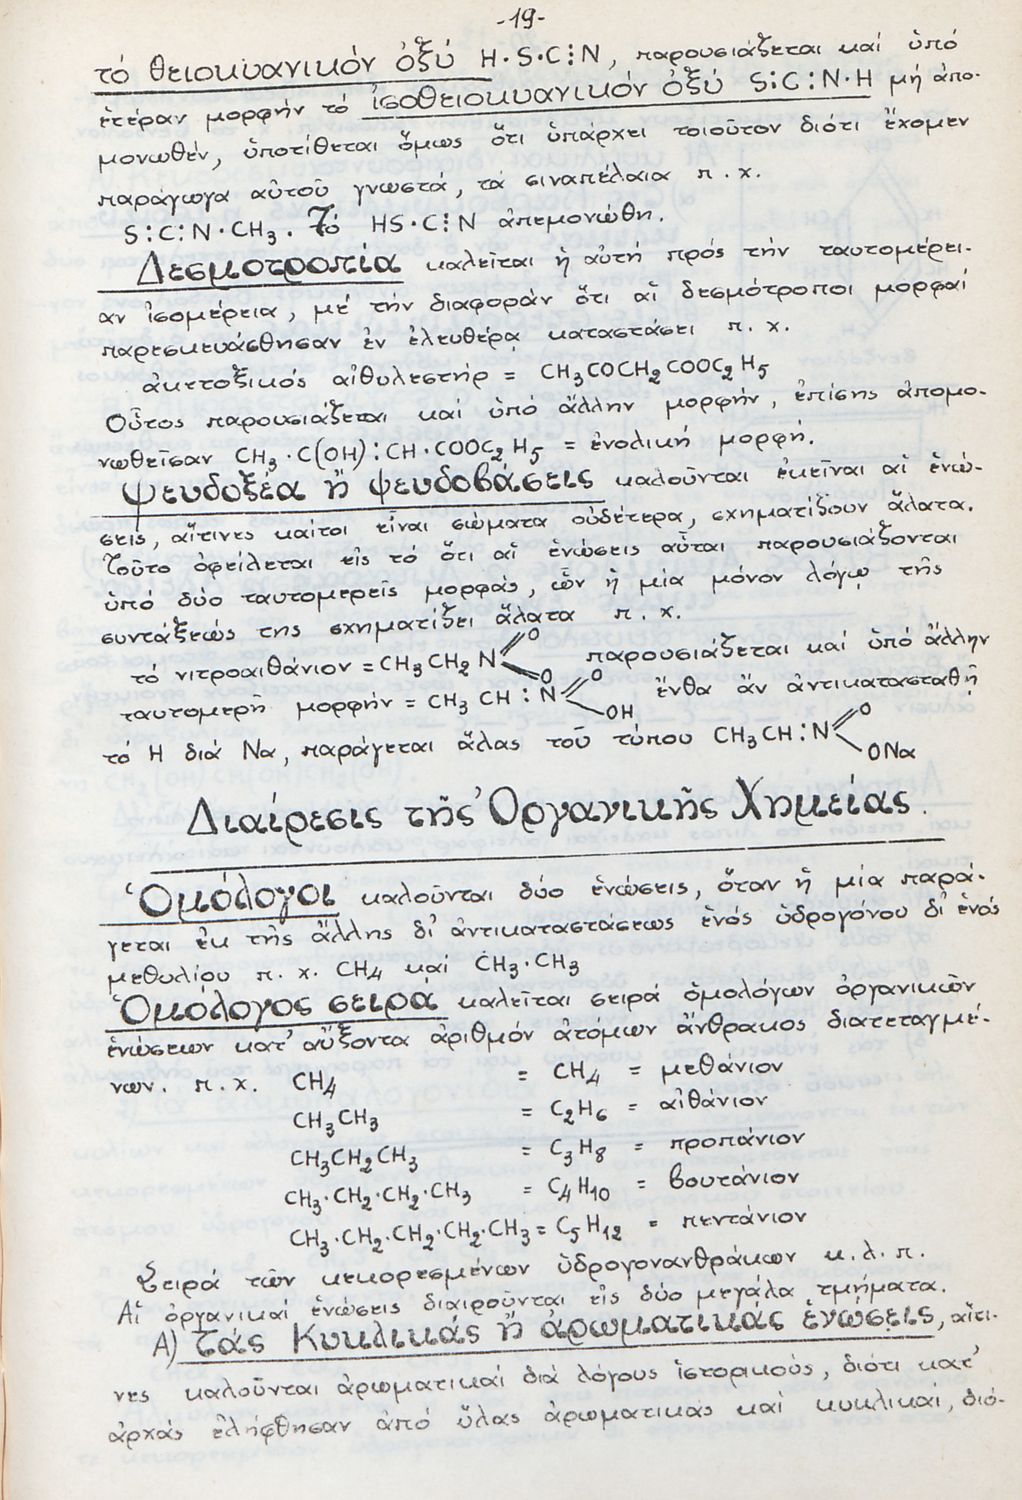 -19-
τό θειοκυανικόν ὀξύ H·S·C⋮N, παρουσιάζεται καί ὑπό
ἑτέραν μορφήν τό ἰσοθειοκυανικόν ὀξύ S:C:N·H μή ἀπο-
μονωθέν, ὑποτίθεται ὅμως ὅτι ὑπάρχει τοιοῦτον διότι ἔχομεν
παράγωγα αὐτοῦ γνωστά, τά σιναπέλαια π.χ.
S:C:N·CH₃. Τό HS·C⋮N ἀπεμονώθη.
Δεσμοτροπία καλεῖται ἡ αὐτή πρός τήν ταυτομέρει-
αν ἰσομέρεια, μέ τήν διαφοράν ὅτι αἱ δεσμότροποι μορφαί
παρεσκευάσθησαν ἐν ἐλευθέρᾳ καταστάσει π.χ.
ἀκετοξικός αἰθυλεστήρ = CH₃COCH₂COOC₂H₅
Οὗτος παρουσιάζεται καί ὑπό ἄλλην μορφήν, ἐπίσης ἀπομο-
νωθεῖσαν CH₃·C(OH):CH·COOC₂H₅ = ἐνολική μορφή.
Ψευδοξέα ἤ ψευδοβάσεις καλοῦνται ἐκεῖναι αἱ ἑνώ-
σεις, αἵτινες καίτοι εἶναι σώματα οὐδέτερα, σχηματίζουν ἅλατα.
Τοῦτο ὀφείλεται εἰς τό ὅτι αἱ ἑνώσεις αὗται παρουσιάζονται
ὑπό δύο ταυτομερεῖς μορφάς, ὧν ἡ μία μόνον λόγῳ τῆς
συντάξεώς της σχηματίζει ἅλατα π.χ.
τό νιτροαιθάνιον = CH₃CH₂N O O παρουσιάζεται καί ὑπό ἄλλην
ταυτομερῆ μορφήν = CH₃CH:N O OH ἔνθα ἄν ἀντικατασταθῇ
τό H διά Να, παράγεται ἅλας τοῦ τύπου CH₃CH:N O ONa
Διαίρεσις τῆς Ὀργανικῆς Χημείας.
Ὁμόλογοι καλοῦνται δύο ἑνώσεις, ὅταν ἡ μία παρά-
γεται ἐκ τῆς ἄλλης δι' ἀντικαταστάσεως ἑνός ὑδρογόνου δι' ἑνός
μεθυλίου π.χ. CH₄ καί CH₃·CH₃
Ὁμόλογος σειρά καλεῖται σειρά ὁμολόγων ὀργανικῶν
ἑνώσεων κατ' αὔξοντα ἀριθμόν ἀτόμων ἄνθρακος διατεταγμέ-
νων. π.χ. CH₄ = CH₄ = μεθάνιον
CH₃CH₃ = C₂H₆ = αἰθάνιον
CH₃CH₂CH₃ = C₃H₈ = προπάνιον
CH₃·CH₂·CH₂·CH₃ = C₄H₁₀ = βουτάνιον
CH₃·CH₂·CH₂·CH₂·CH₃ = C₅H₁₂ = πεντάνιον
Σειρά τῶν κεκορεσμένων ὑδρογονανθράκων κ.λ.π.
Αἱ ὀργανικαί ἑνώσεις διαιροῦνται εἰς δύο μεγάλα τμήματα.
Α) τάς Κυκλικάς ἤ ἀρωματικάς ἑνώσεις, αἵτι-
νες καλοῦνται ἀρωματικαί διά λόγους ἱστορικούς, διότι κατ'
ἀρχάς ἐλήφθησαν ἀπό ὕλας ἀρωματικάς καί κυκλικαί, διό-